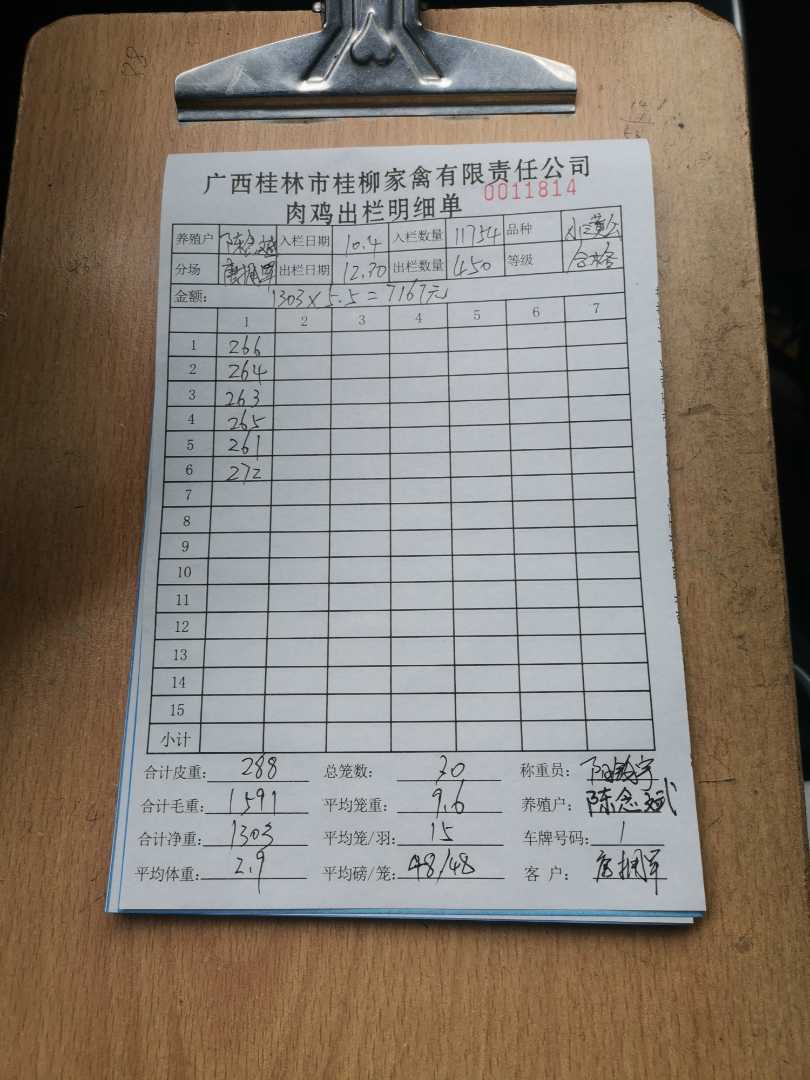 广西桂林市桂柳家禽有限责任公司
0011814
肉鸡出栏明细单
养殖户 陈念斌 入栏日期 10.4 入栏数量 11754 品种
分场 唐拥军 出栏日期 12.30 出栏数量 450 等级 合格
金额： 1303×5.5=7167元
1 2 3 4 5 6 7
1 266
2 264
3 263
4 265
5 261
6 272
7
8
9
10
11
12
13
14
15
小计
合计皮重： 288 总笼数： 30 称重员：
合计毛重： 1591 平均笼重： 9.6 养殖户： 陈念斌
合计净重： 1303 平均笼/羽： 15 车牌号码： 1
平均体重： 2.9 平均磅/笼： 48/48 客户： 唐拥军